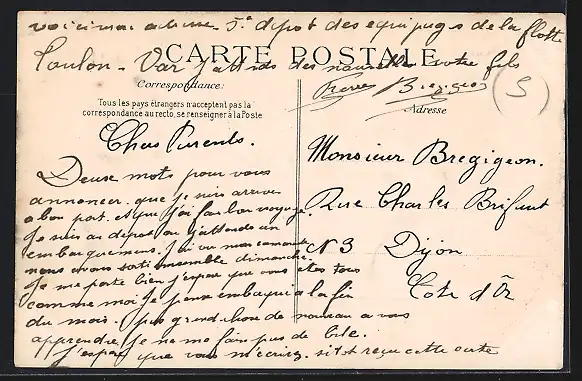 voici mon adresse 5e depot des equipages de la flotte
Toulon - Var j'attends des nouvelles votre fils
Pierre Bregigeon
CARTE POSTALE
Correspondance
Tous les pays étrangers n'acceptent pas la
correspondance au recto, se renseigner à la Poste
Adresse
5
Chers Parents.
Deuse mots pour vous
annoncer que je suis arriver
a bon port. et que j'ai fai bon voyage
Je suis au depot ou j'attends un
embarquement. J'ai vu mon camarade
nous avons sorti ensemble dimanche.
Je me porte bien j'espere que vous etes tous
comme moi je pense embarqui a la fin
du mois. pas grand chose de nouveau a vous
apprendre, je ne me fais pas de bile.
j'espere que vous m'ecrirez sitot reçu cette carte
Monsieur Bregigeon.
Rue Charles Brifaut
N 3 Dijon
Cote d'Or